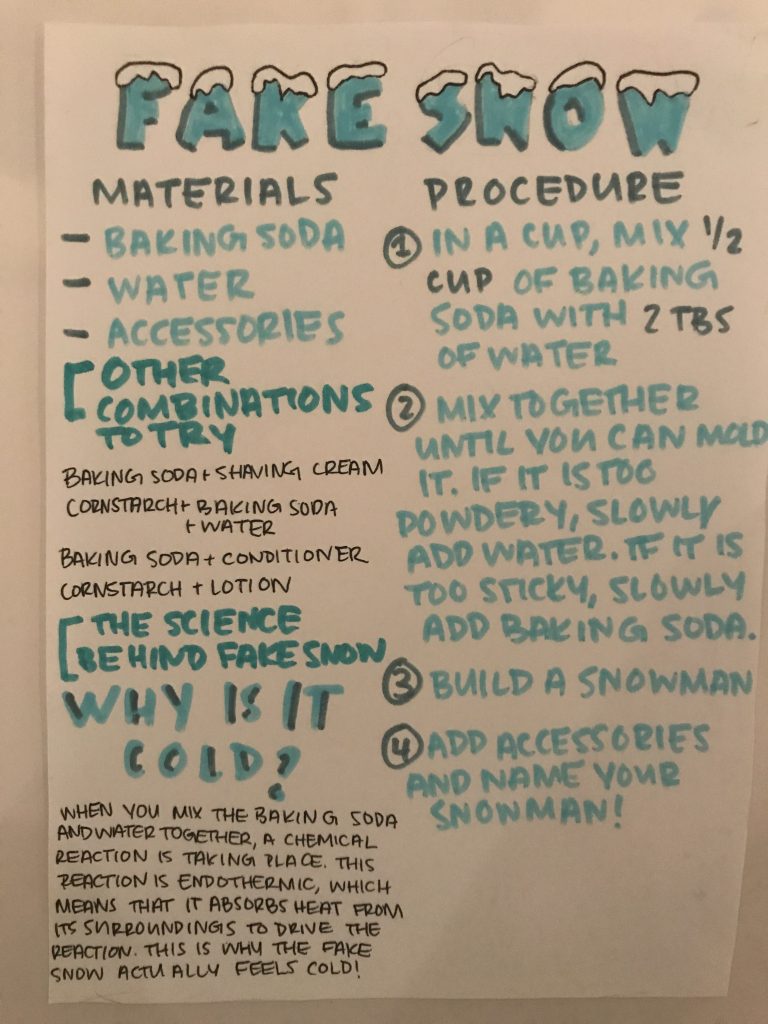 FAKE SNOW
MATERIALS
- BAKING SODA
- WATER
- ACCESSORIES
OTHER
COMBINATIONS
TO TRY
BAKING SODA + SHAVING CREAM
CORNSTARCH + BAKING SODA
+ WATER
BAKING SODA + CONDITIONER
CORNSTARCH + LOTION
THE SCIENCE
BEHIND FAKE SNOW
WHY IS IT
COLD?
WHEN YOU MIX THE BAKING SODA
AND WATER TOGETHER, A CHEMICAL
REACTION IS TAKING PLACE. THIS
REACTION IS ENDOTHERMIC, WHICH
MEANS THAT IT ABSORBS HEAT FROM
ITS SURROUNDINGS TO DRIVE THE
REACTION. THIS IS WHY THE FAKE
SNOW ACTUALLY FEELS COLD!
PROCEDURE
1 IN A CUP, MIX 1/2
CUP OF BAKING
SODA WITH 2 TBS
OF WATER
2 MIX TOGETHER
UNTIL YOU CAN MOLD
IT. IF IT IS TOO
POWDERY, SLOWLY
ADD WATER. IF IT IS
TOO STICKY, SLOWLY
ADD BAKING SODA.
3 BUILD A SNOWMAN
4 ADD ACCESSORIES
AND NAME YOUR
SNOWMAN!